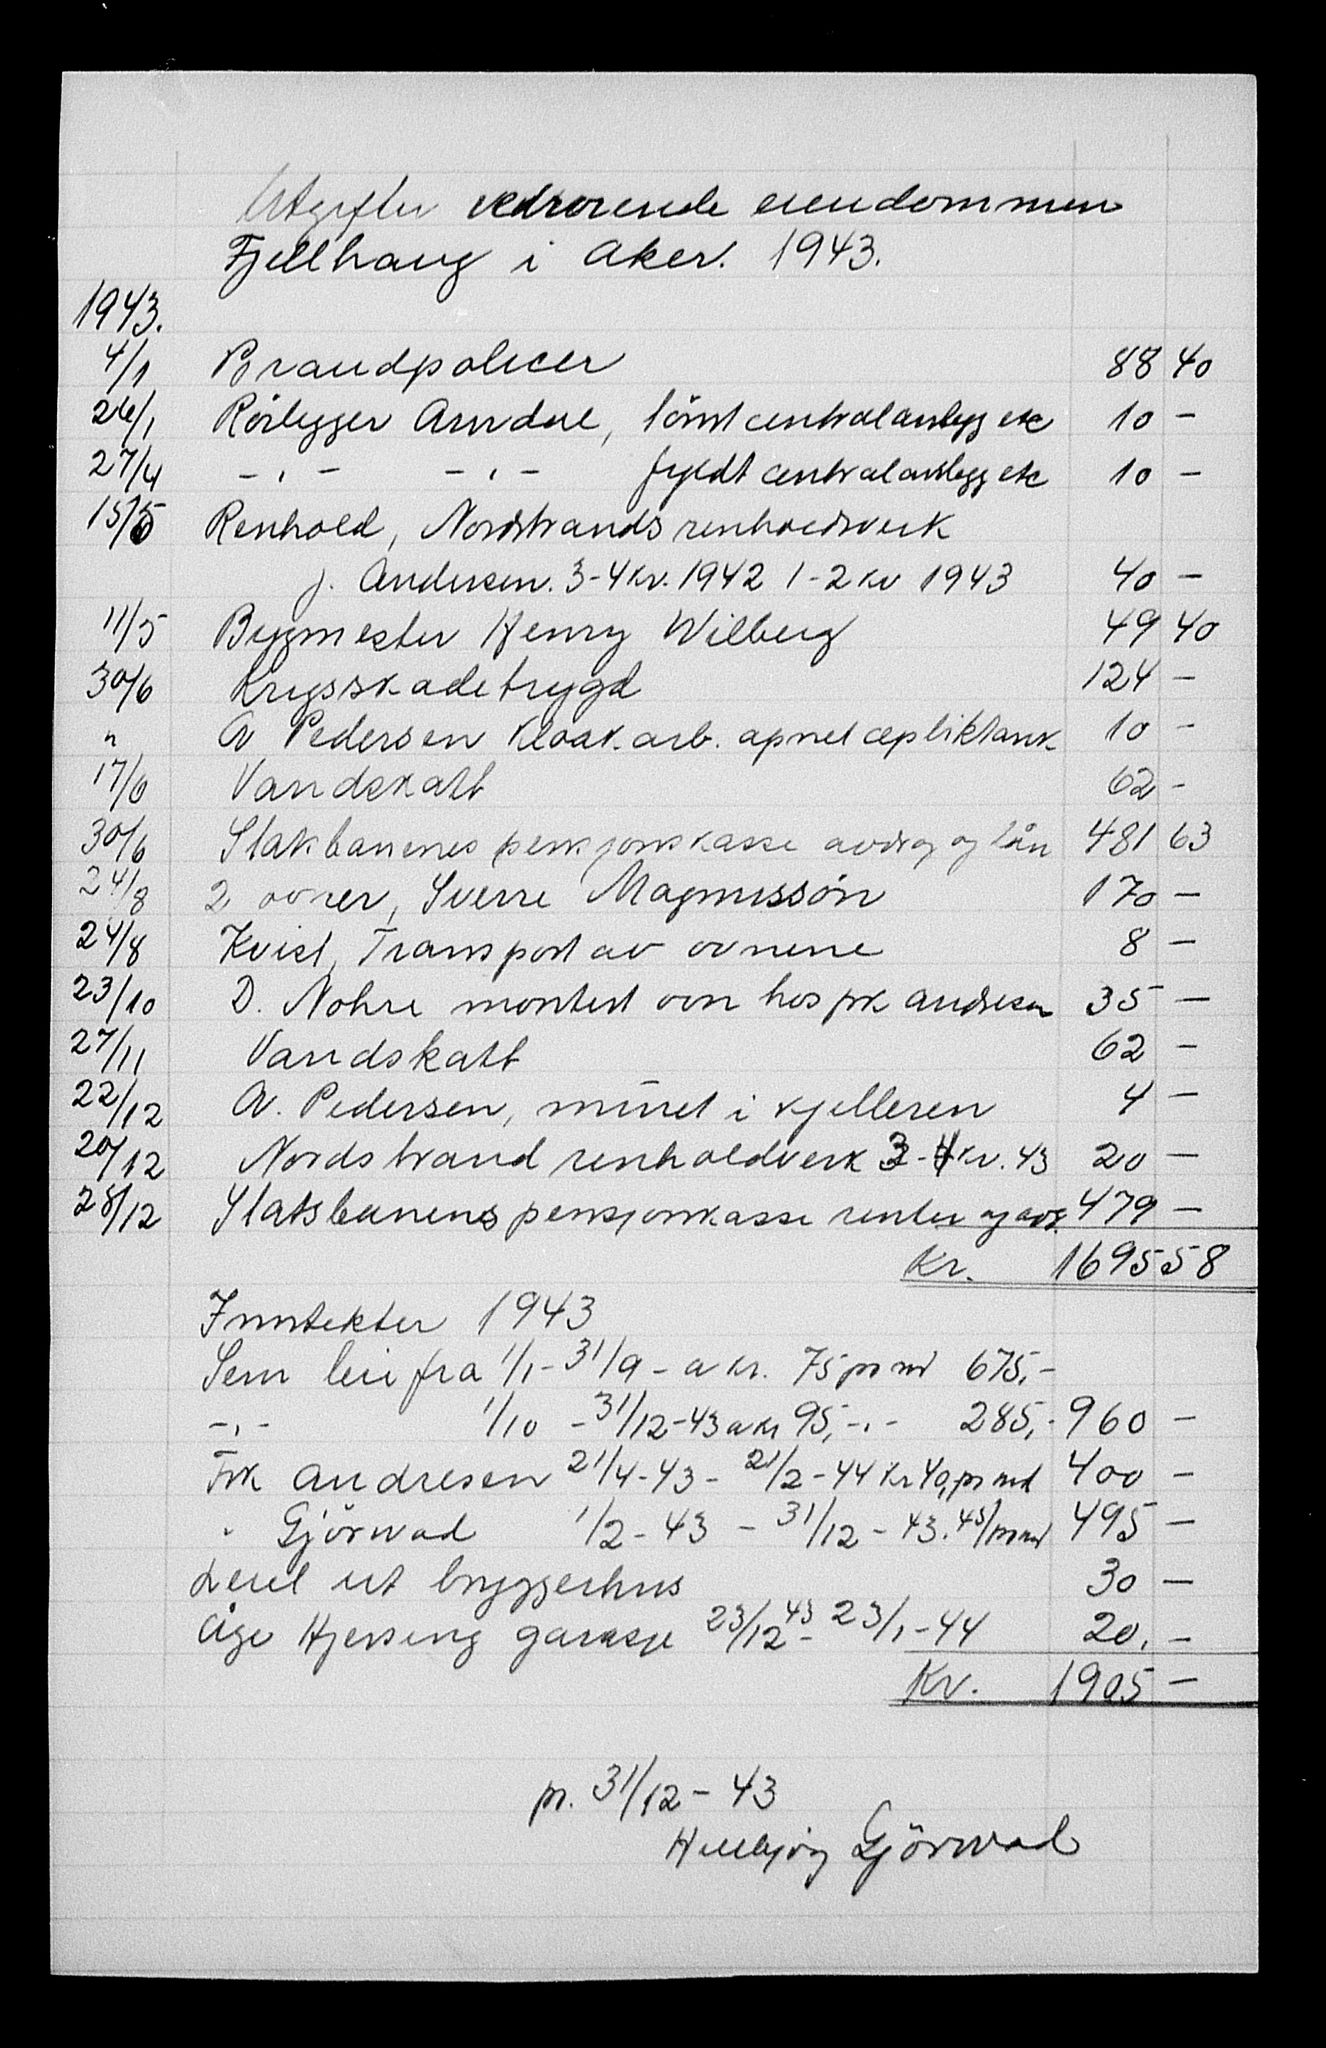 Utgifter vedrørende eiendommen
Fjellhaug i Aker. 1943.
1943.
4/1 Brandpolicer 88 40
26/1 Rörlegger Arndal, tömt centralanlegg etc 10 -
27/4 -,- -,- fyldt centralanlegg etc 10 -
15/5 Renhold, Nordstrands renholdsverk
J. Andersen. 3-4 kv. 1942 1-2 kv 1943 40 -
11/5 Bygmester Henry Wilberg 49 40
30/6 Krigsskadetrygd 124 -
" A Pedersen kloak.arb. apnet cepliktank 10 -
17/6 Vandskatt 62 -
30/6 Statsbanenes pensjonskasse avdrag og lån 481 63
24/8 2 ovner, Sverre Magnussön 170 -
24/8 Kvist, Transport av ovnene 8 -
23/10 D. Nohre montert ovn hos frk Andresen 35 -
27/11 Vandskatt 62 -
22/12 A. Pedersen, muret i kjelleren 4 -
20/12 Nordstrand renholdverk 3-4 kv. 43 20 -
28/12 Statsbanenes pensjonkasse renter og avd. 479 -
Kr. 1695 58
Inntekter 1943
Sem leie fra 1/1 - 31/9 - a kr. 75 pr md 675,-
-,- 1/10 - 31/12-43 a kr 95, -,- 285,- 960 -
Frk Andresen 21/4-43 - 21/2-44 Kr 40, pr md 400 -
" Gjörwad 1/2-43 - 31/12-43. 45/pr md 495 -
Leiet ut bryggerhus 30 -
Åge Hjersing garasje 23/12 43 - 23/1-44 20, -
Kr. 1905 -
pr. 31/12-43
Gjörwad